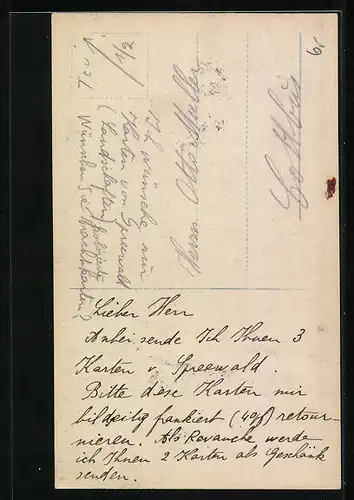 Ich wünsche nur
Karten von Spreewald
(Landschaften, kolorierte)
Wünschen Sie Trachtenkarten?
Herrn
Cottbus
Lieber Herr
Anbei sende Ich Ihnen 3
Karten v. Spreewald.
Bitte diese Karten mir
bildseitig frankiert (40 pf) retour-
nieren. Als Revanche werde
ich Ihnen 2 Karten als Geschänk
senden.